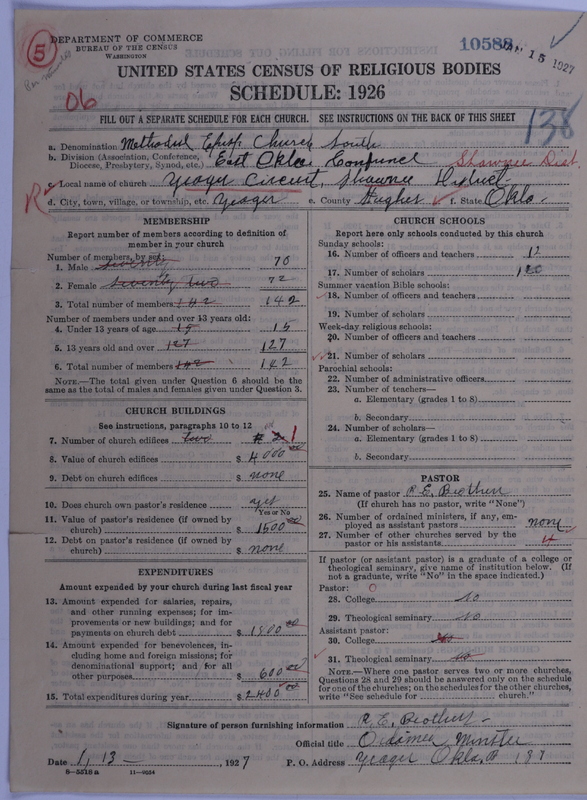 5
DEPARTMENT OF COMMERCE
BUREAU OF THE CENSUS
WASHINGTON
10588
JAN 15 1927
UNITED STATES CENSUS OF RELIGIOUS BODIES
SCHEDULE: 1926
06
138
FILL OUT A SEPARATE SCHEDULE FOR EACH CHURCH. SEE INSTRUCTIONS ON THE BACK OF THIS SHEET
a. Denomination Methodist Episp. Church South
b. Division (Association, Conference, Diocese, Presbytery, Synod, etc.) East Okla. Shawnee Dist.
c. Local name of church Yeager Circuit, Shawnee
d. City, town, village, or township, etc. Yeager e. County Hughes f. State Okla.
MEMBERSHIP
Report number of members according to definition of
member in your church
Number of members, by sex:
1. Male seventy 70
2. Female seventy two 72
3. Total number of members 142 142
Number of members under and over 13 years old:
4. Under 13 years of age 15 15
5. 13 years old and over 127 127
6. Total number of members 142 142
NOTE.—The total given under Question 6 should be the
same as the total of males and females given under Question 3.
CHURCH BUILDINGS
See instructions, paragraphs 10 to 12
7. Number of church edifices two 2 1
8. Value of church edifices $ 4000 00
9. Debt on church edifices $ none
10. Does church own pastor's residence yes
Yes or No
11. Value of pastor's residence (if owned by
church) $ 1500 00
12. Debt on pastor's residence (if owned by
church) $ none
EXPENDITURES
Amount expended by your church during last fiscal year
13. Amount expended for salaries, repairs,
and other running expenses; for im-
provements or new buildings; and for
payments on church debt $ 1800 00
14. Amount expended for benevolences, in-
cluding home and foreign missions; for
denominational support; and for all
other purposes $ 600 00
15. Total expenditures during year $ 2400 00
CHURCH SCHOOLS
Report here only schools conducted by this church
Sunday schools:
16. Number of officers and teachers 12
17. Number of scholars
Summer vacation Bible schools:
18. Number of officers and teachers
19. Number of scholars
Week-day religious schools:
20. Number of officers and teachers
21. Number of scholars
Parochial schools:
22. Number of administrative officers
23. Number of teachers—
a. Elementary (grades 1 to 8)
b. Secondary
24. Number of scholars—
a. Elementary (grades 1 to 8)
b. Secondary
PASTOR
25. Name of pastor R. E. Brothers
(If church has no pastor, write "None")
26. Number of ordained ministers, if any, em-
ployed as assistant pastors none
27. Number of other churches served by the
pastor or his assistants 4
If pastor (or assistant pastor) is a graduate of a college or
theological seminary, give name of institution below. (If
not a graduate, write "No" in the space indicated.)
Pastor: O
28. College No
29. Theological seminary No
Assistant pastor:
30. College No
31. Theological seminary No
NOTE.—Where one pastor serves two or more churches,
Questions 28 and 29 should be answered only on the schedule
for one of the churches; on the schedules for the other churches,
write "See schedule for church."
Signature of person furnishing information R. E. Brothers
Official title Minister
Date 1, 13 — , 1927 P. O. Address Yeager Okla. B 187
8—5518 a 11—9034